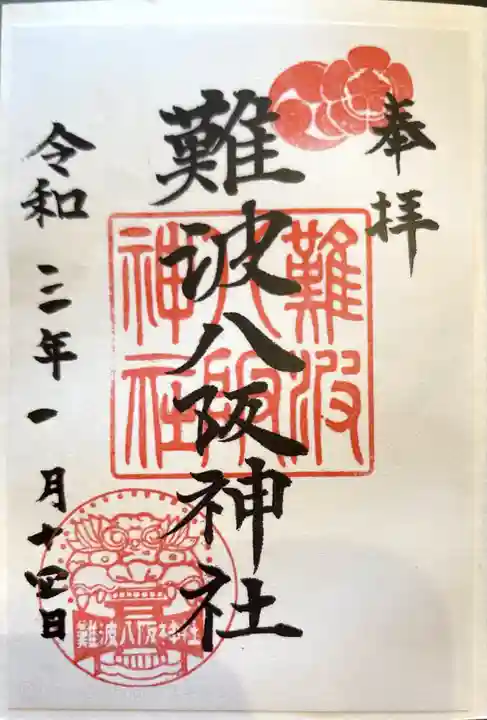 奉拝
難波八阪神社
令和三年一月十四日
難波
八阪
神社
難波八阪神社